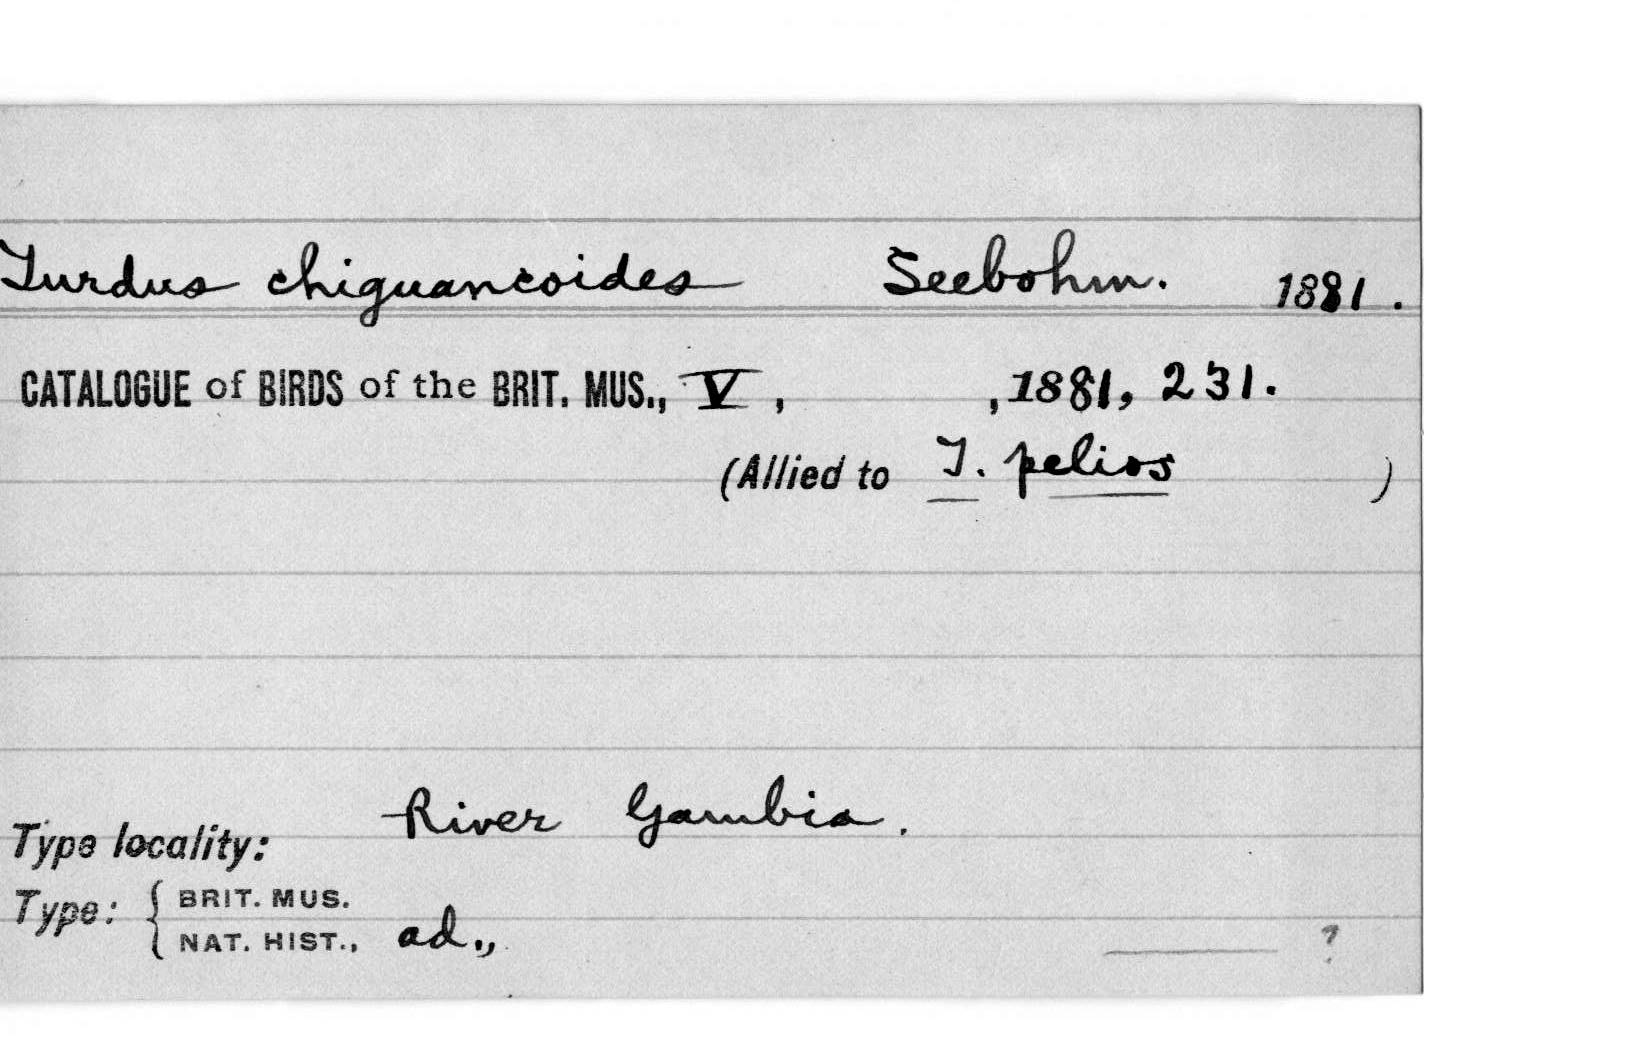 Turdus chiguancoides Seebohm. 1881.
CATALOGUE of BIRDS of the BRIT. MUS., V, ,1881, 231.
(Allied to T. pelios )
Type locality: River Gambia.
Type: { BRIT. MUS.
NAT. HIST., ad., ?